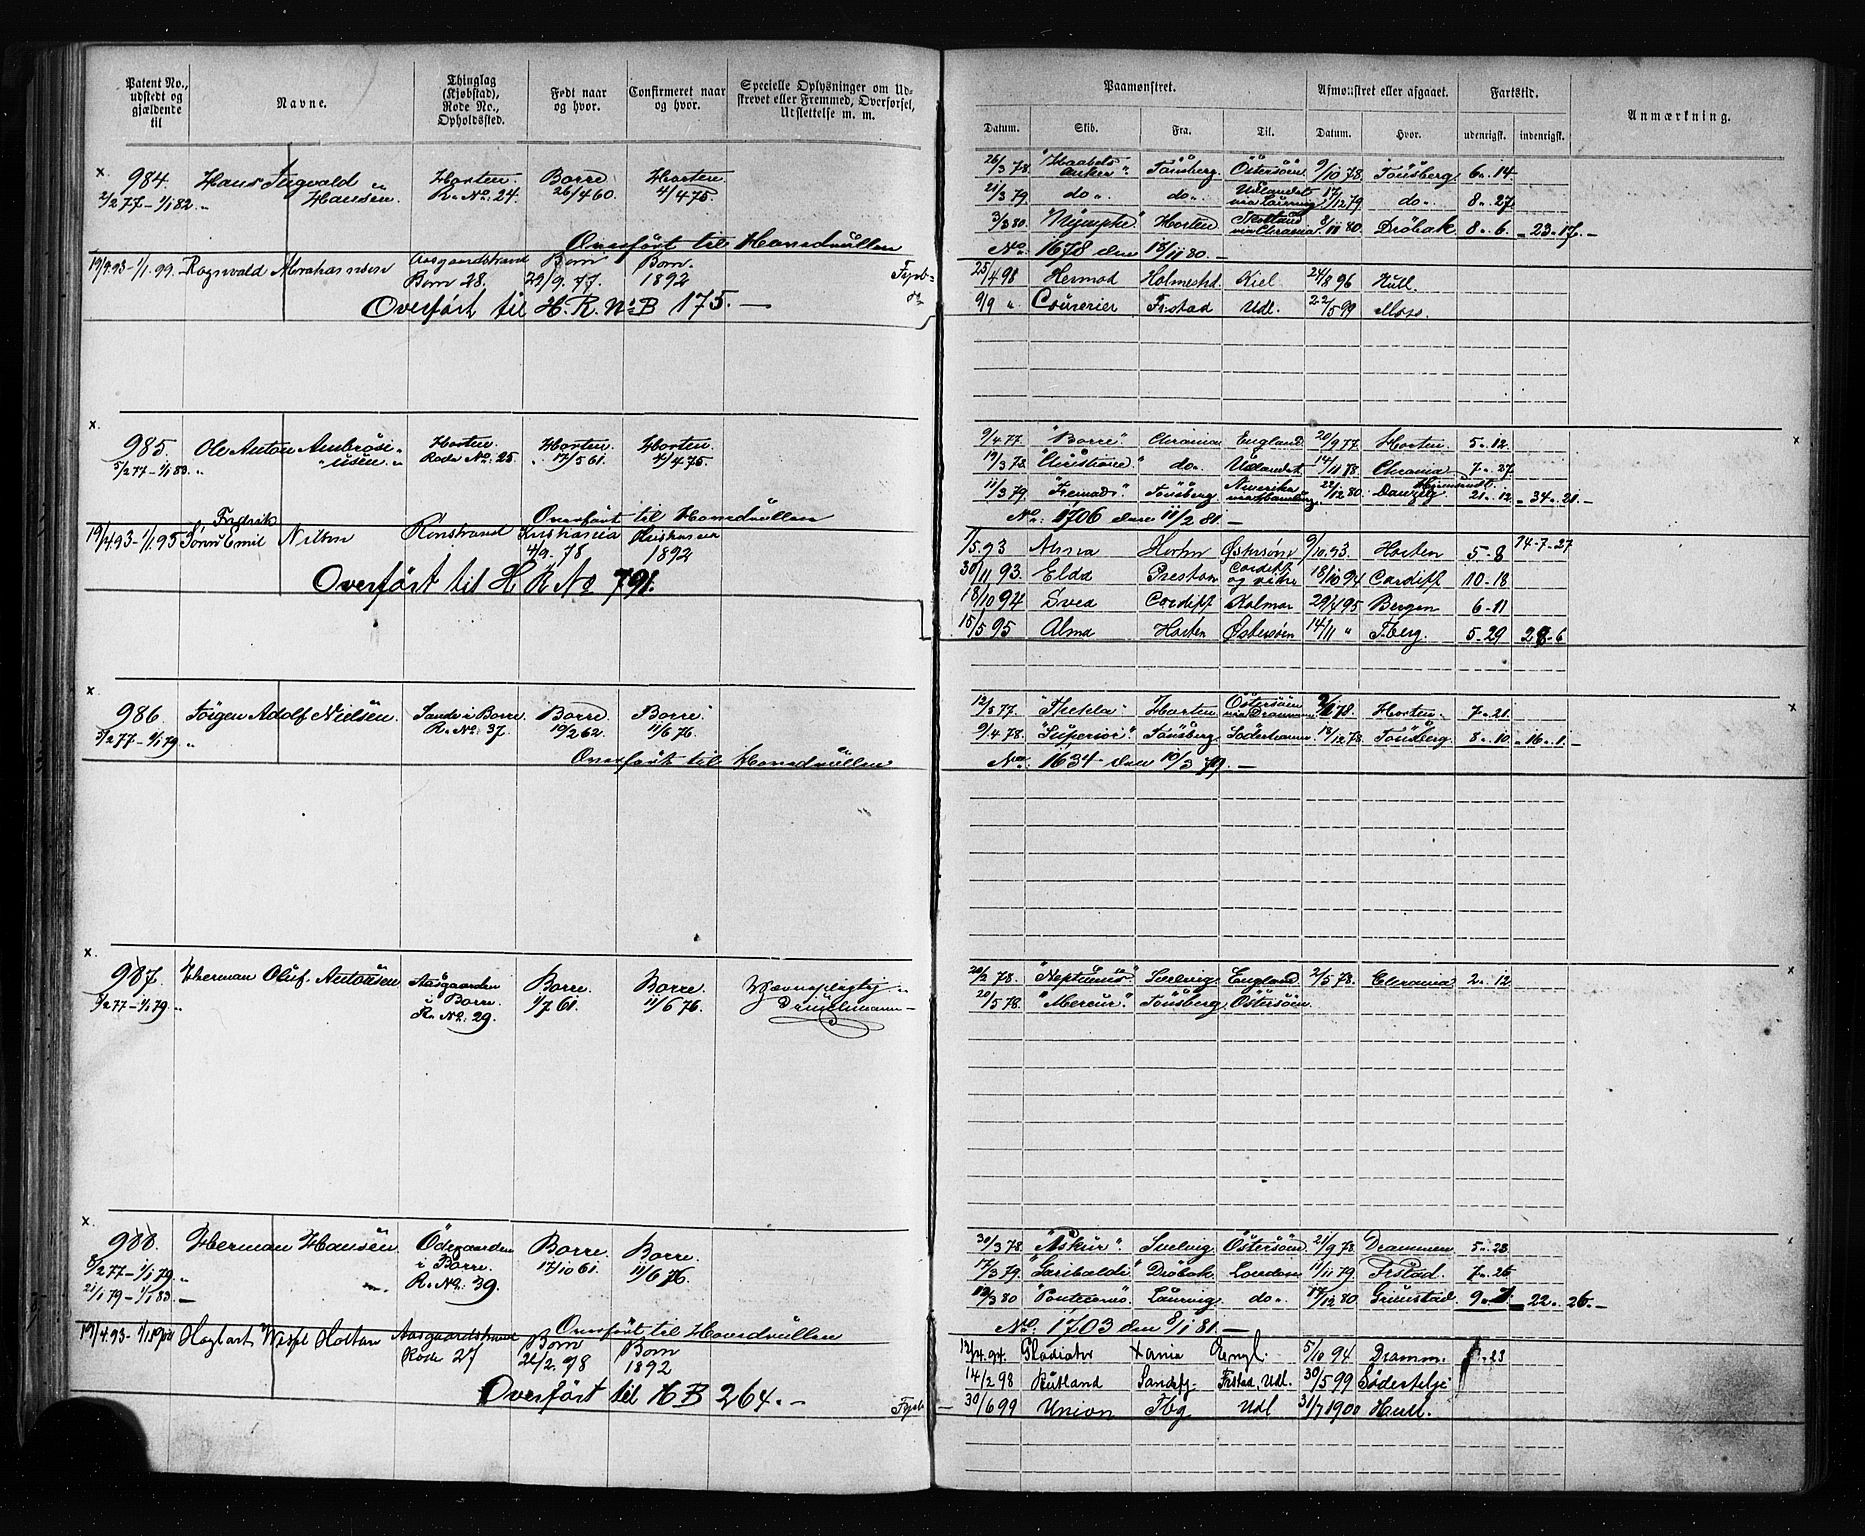 Patent No., udstedt og gjældende til
Navne.
Thinglag (Kjøbstad), Rode No., Opholdssted.
Født naar og hvor.
Confirmeret naar og hvor.
Specielle Oplysninger om Udskrevet eller Fremmed, Overførsel, Udslettelse m. m.
Paamønstret.
Afmønstret eller afgaaet.
Fartstid.
Anmærkning.
Datum. Skib. Fra. Til. Datum. Hvor. udenrigsk. indenrigsk.
984. Hans Hansen Horten Borre Horten
2/2 77 – 1/1 82 R. No. 24. 26/4 60 4/4 75.
26/3 78. "Haabets Anker". Tønsberg. Östersöen 9/10 78. Tönsberg. 6 „ 14
21/3 79. do „ do „ Udlandet 17/12 79. do „ 8 „ 27
3/3 80. "Nymphe" Horten 8/11 80. Dröbak 8 „ 6 „ 23 „ 17 –
Overfört til Hovedrullen
No. 1678 den 18/11 80. –
19/4 93 – 1/1 99. Ragnvald Abrahamsen Aasgaardstrand Borre Borre
Borre 28. 22/9. 77. 1892
25/4 98 Hermod Holmestrd. Kiel 24/8 96 Hull.
9/9 „ Courrier Frstad Udl. 22/5 99 Moss.
Overført til H. R. No. B 175. –
985. Ole Anton Ambrösiusen Horten Horten Horten
5/2 77 – 1/1 83. Rode No. 25. 17/5 61. 4/4 75.
9/4 77. "Borre". Chrania England 20/9 77. Horten 5 „ 12
19/3 78. "Christiane" do „ Udlandet 14/11 78. Chrania 7 „ 27
11/3 79. "Fremad". Tönsberg Amerika 22/12 80. Danzig 21 „ 12 „ 34 „ 21 –
Overfört til Hovedrullen
No. 1706 den 11/2 81. –
Fredrik
19/4 93 – 1/1 95 Emil Nilsen Kristiania Kristiania
4/9. 78 1892
1/5 93 Alma Horten Østersøen 9/10. 93. Horten 5 - 8 14 - 7 - 27
30/11 93. Elda Preston Cardiff 18/10 94 Cardiff 10 - 18
18/10 94 Svea Cardiff Kalmar 29/4 95 Bergen 6 - 11
15/5 95 Alma Horten Østersøen 14/11 „ T.berg. 5 - 29 28 - 6
Overført til H R No 791.
986. Jörgen Adolf Nielsen. Sande i Borre. Borre. Borre.
5/2 77 – 1/1 79 R. No. 37. 19/2 62. 11/6 76.
12/5 77. "Thekla" Horten Östersöen via Drammen Horten. 7 „ 21
9/4 78. "Superior" Tönsberg 18/12 78. Tönsberg. 8 „ 10 „ 16 „ 1. –
Overfört til Hovedrullen
No. 1634 den 19/3 79. –
987. Herman Oluf Antonsen Aasgaarden i Borre. Borre. Borre.
5/2 77 – 1/1 79. R. No. 29. 1/7 61. 11/6 76.
20/2 78. "Neptunus" Svelvig. England 2/5 78. Chrania 2 „ 12
20/5 78. "Mercur." Tönsberg. Östersöen
988. Herman Hansen Ödegaarden i Borre. Borre. Borre.
8/2 77 – 1/1 79 R. No. 39. 17/10 61. 11/6 76.
21/1 79 – 1/1 83. –
30/3 78. "Askur". Svelvig. Östersöen 21/9 78. Drammen 5 „ 23
17/3 79. "Garibaldi" Dröbak. London 11/11 79. Frstad. 7 „ 25
Laurvig. do „ 17/12 80. Grimstad 22 „ 26 –
Overfört til Hovedrullen
No. 1703 den 8/1 81. –
Holtan Aasgaardstrand Borre Borre
Rode 27 22/2. 78 1892
12/4. 94. Gladiator Xania Engl. 5/10 94 Dramm. 23
14/2 98 Rutland Sandefj. Frstad, Udl. 30/5 99 Södertelje
30/6 99 Union Tbg Udl 31/7 1900 Hull.
Overført til H B 264. –